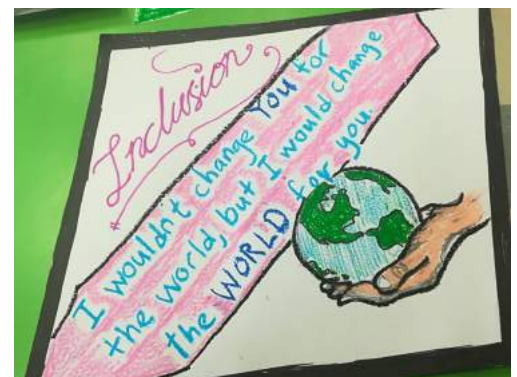 Inclusion
I wouldn't change You for
the world, but I would change
the WORLD for you.